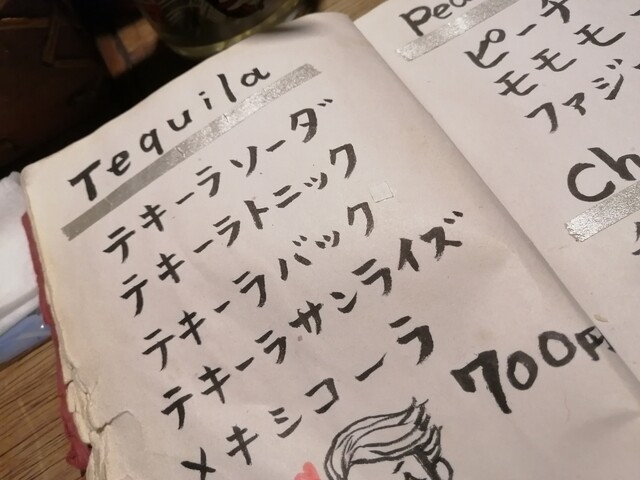 Tequila
テキーラソーダ
テキーラトニック
テキーラバック
テキーラサンライズ
メキシコーラ
700円
ピーチ
モモモ
ファジー
Ch